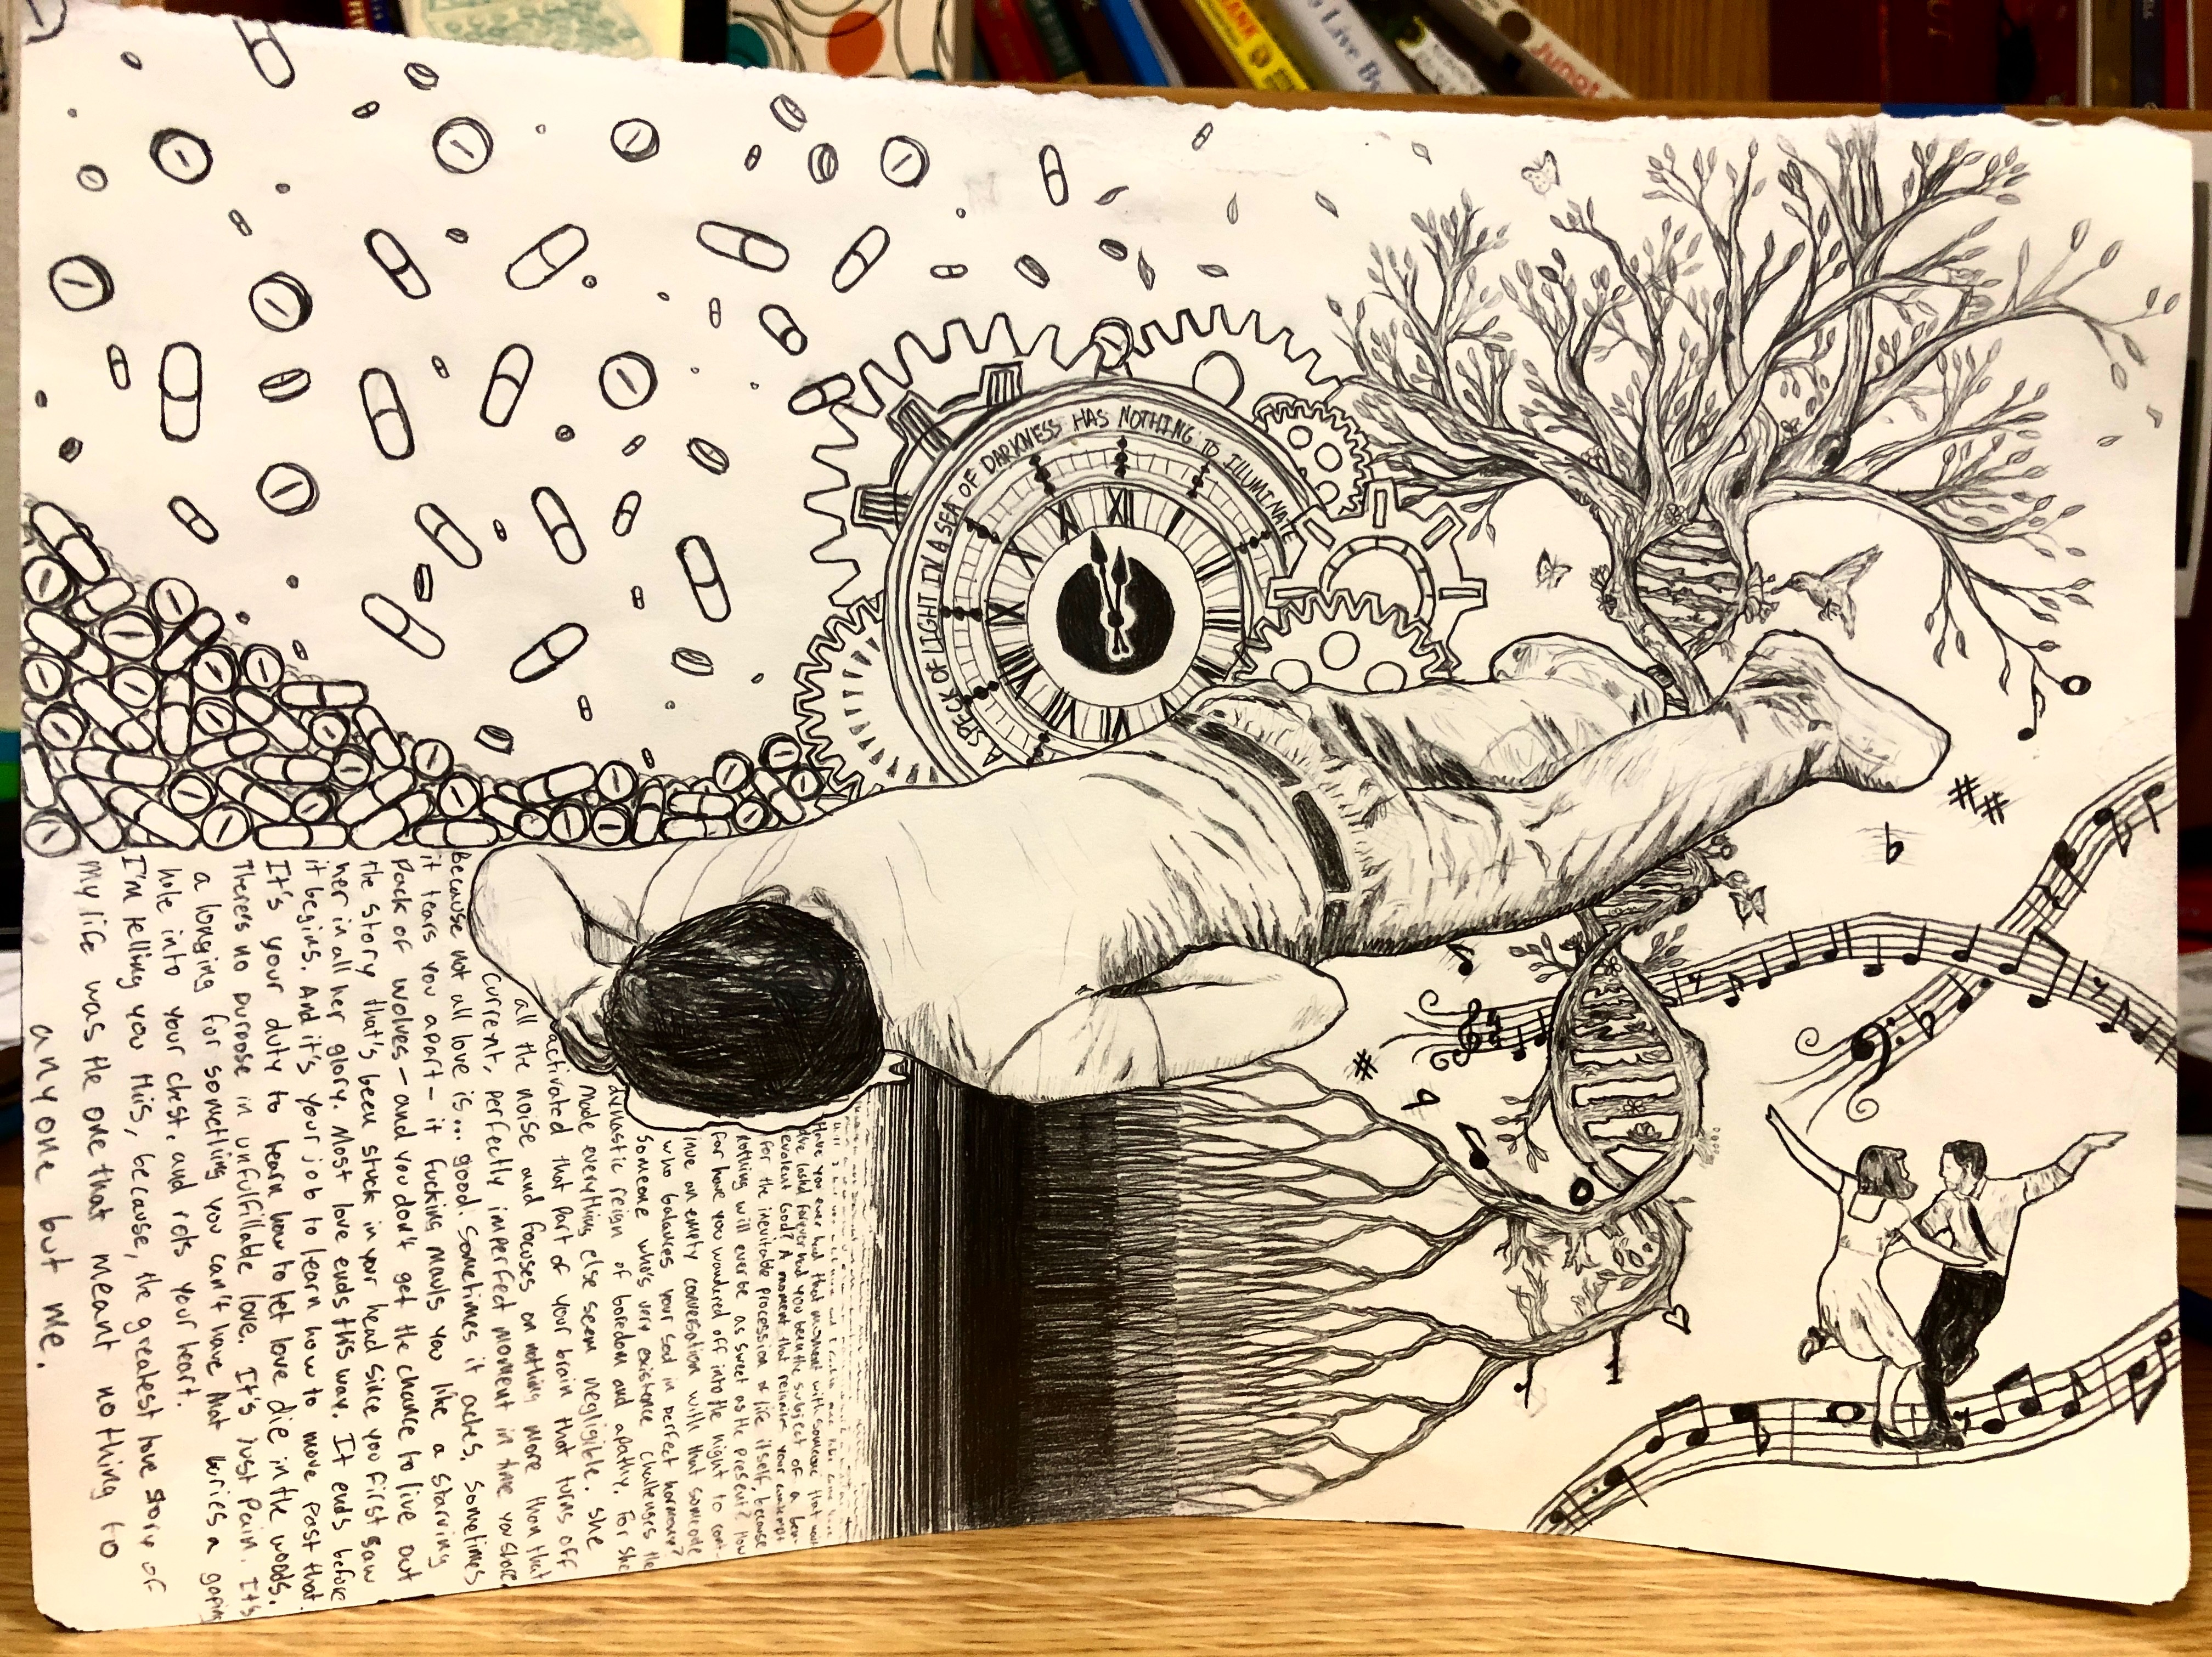 A SPECK OF LIGHT IN A SEA OF DARKNESS HAS NOTHING TO ILLUMINATE
Have you ever had that moment with someone that
forever had you been the subject of a ben-
evolent God? A moment that your contempt
for the inevitable procession of life itself, because
nothing will ever be as sweet as the present? How
far have you wandered off into the night to cont-
inue an empty conversation with that someone
who balances your soul in perfect harmony?
Someone who's very existence challenges the
dynastic reign of boredom and apathy. For she
made everything else seem negligible. She
activated that part of your brain that turns off
all the noise and focuses on nothing more than that
current, perfectly imperfect moment in time you share.
because not all love is... good. Sometimes it aches. Sometimes
it tears you apart - it fucking mauls you like a starving
pack of wolves - and you don't get the chance to live out
the story that's been stuck in your head since you first saw
her in all her glory. Most love ends this way. It ends before
it begins. And it's your job to learn how to move past that.
It's your duty to learn how to let love die in the woods.
Theres no purpose in unfulfillable love. It's just pain. It's
a longing for something you can't have that buries a gaping
hole into your chest, and rots your heart.
I'm telling you this, because, the greatest love story of
my life was the one that meant nothing to
anyone but me.